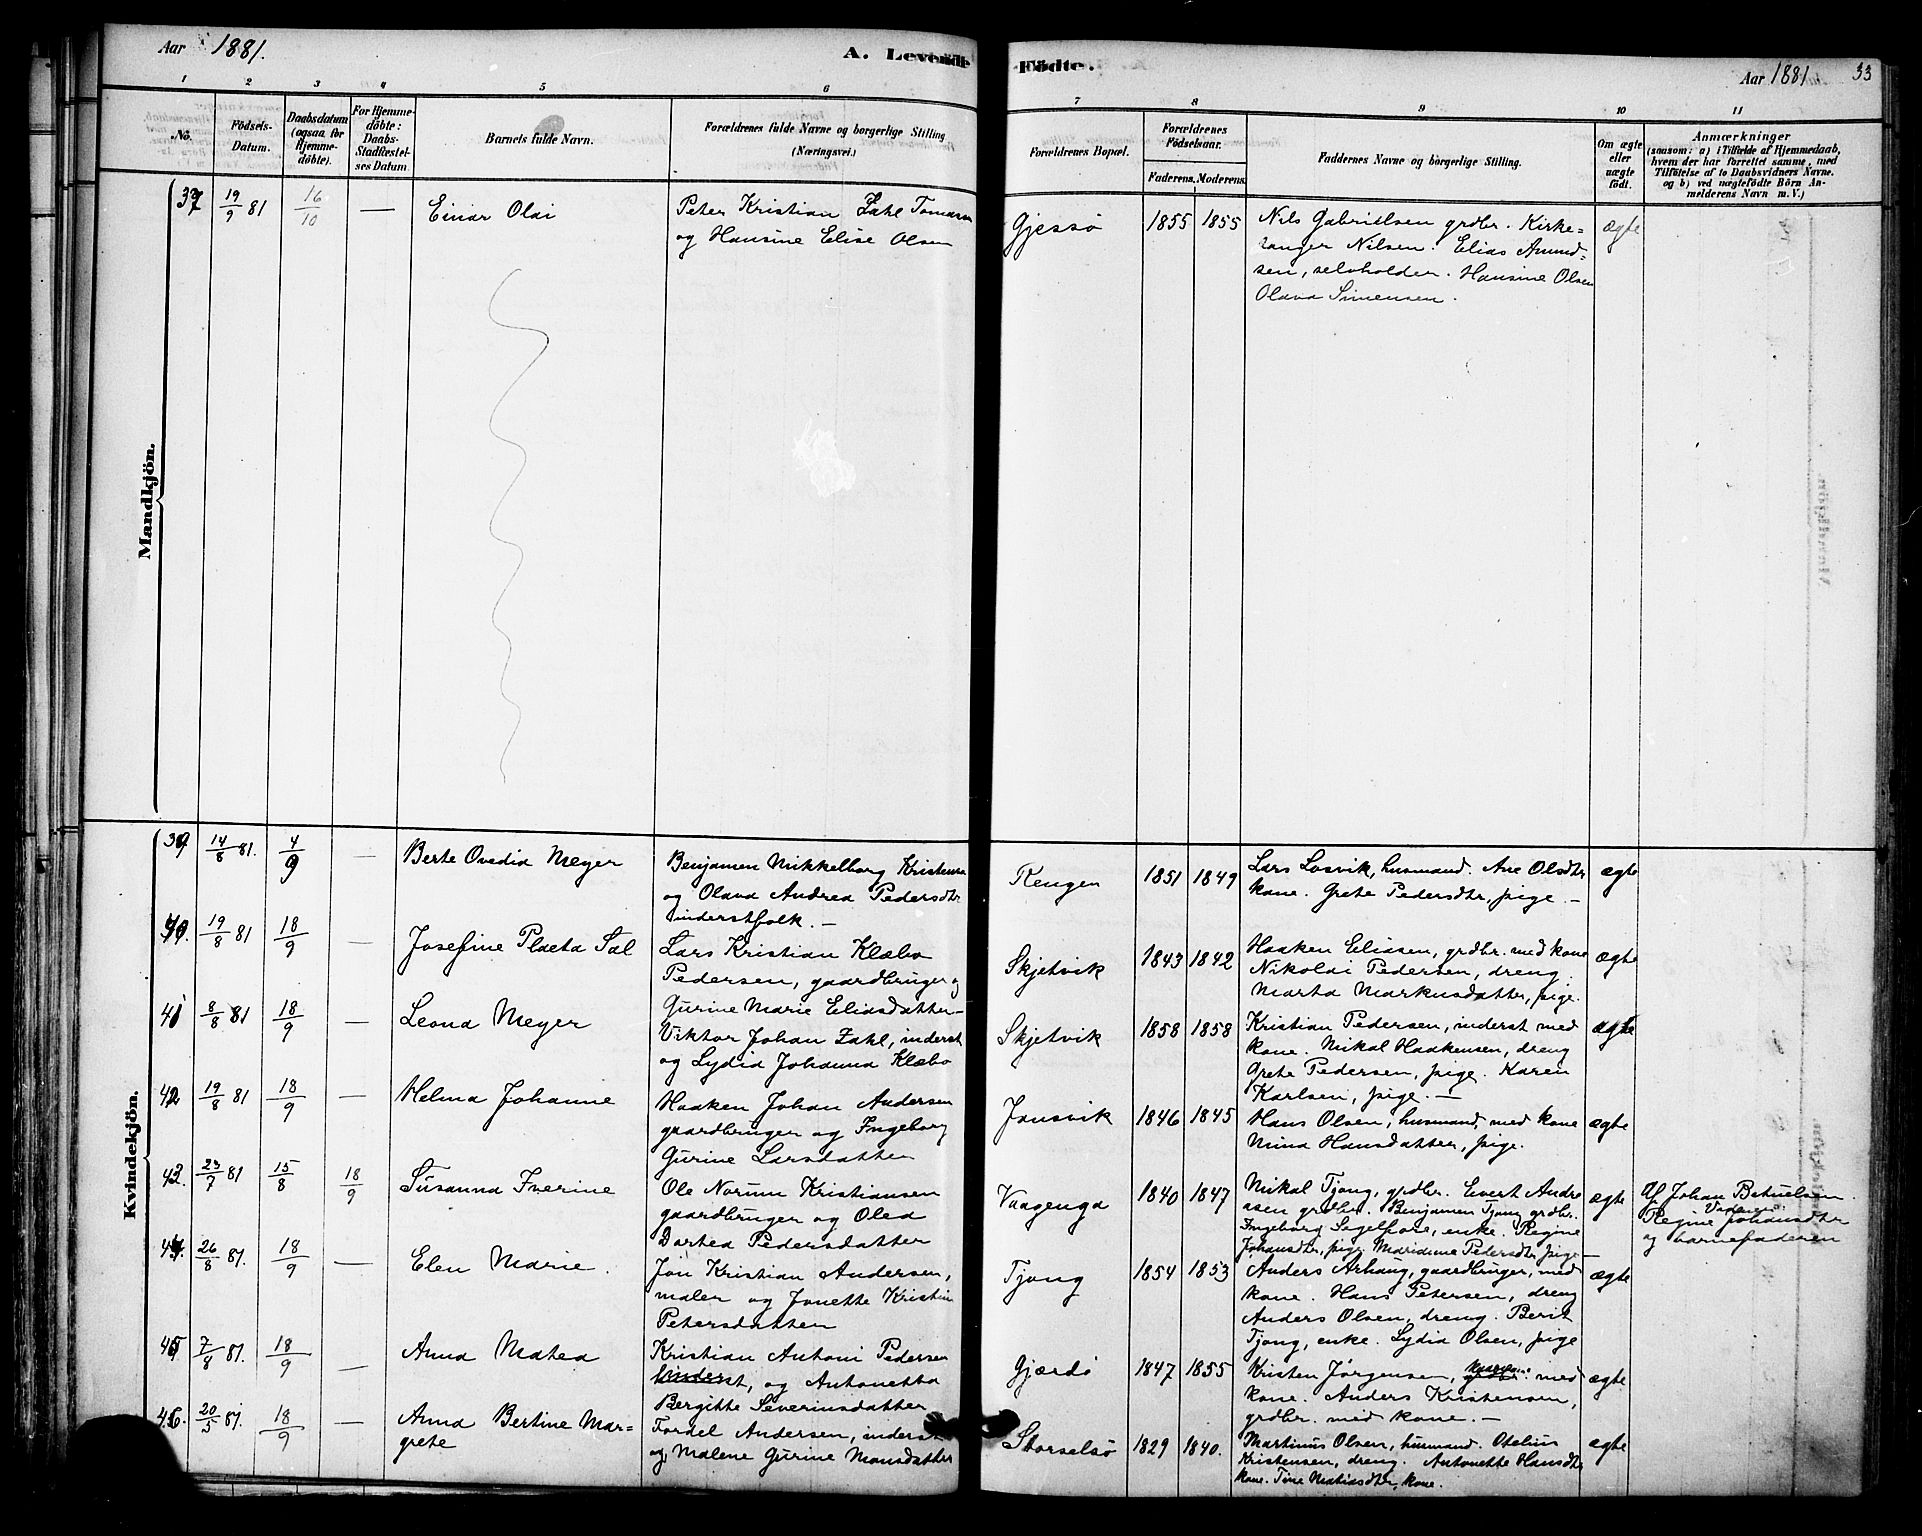 Aar 1881.
A. Levende
Födte.
Aar 1881
33
1 2 3 4 5 6
7 8 9 10 11
No.
Födsels-Datum.
Daabsdatum (ogsaa for Hjemme-döbte).
For Hjemme-döbte: Daabs-Stadfæstel-ses Datum.
Barnets fulde Navn.
Forældrenes fulde Navne og borgerlige Stilling (Næringsvei.)
Forældrenes Bopæl.
Forældrenes Födselsaar.
Faderens. Moderens.
Faddernes Navne og borgerlige Stilling.
Om ægte eller uægte födt.
Anmærkninger
(saasom: a) i Tilfælde af Hjemmedaab,
hvem der har forrettet samme, med
Tilföielse af to Daabsvidners Navne.
og b) ved uægtefödte Börn An-
melderens Navn m. V.)
Mandkjön.
37 19/9 81 16/10 — Einar Olai
Peter Kristian Zahl Tomassen
og Hansine Elise Olsen
Gjessø 1855 1855
Nils Gabrielsen grdbr. Kirke=
sanger Nilsen. Elias Amund=
sen, selvholder. Hansine Olsen
Olava Simensen.
ægte
Kvindekjön.
39 14/8 81. 4/9 — Berte Ovedia Meyer
Benjamen Mikkelborg Kristensen
og Olava Andrea Pedersdtr
inderstfolk. —
Rengen 1851 1849
Lars Losvik, husmand. Ane Olsdtr
kone. Grete Pedersdtr, pige. —
ægte
40. 19/8 81 18/9 — Josefine Plaeta Sal
Lars Kristian Klæbo
Pedersen, gaardbruger og
Gurine Marie Eliasdatter —
Skjetvik 1843 1842
Haaken Eliasen, grdbr. med kone
Nikolai Pedersen, dreng.
Marta Markusdatter, pige.
ægte
41 8/8 81 18/9 — Leona Meyer
Viktor Johan Zahl, inderst
og Lydia Johanna Klæbo
Skjetvik 1858 1858
Kristian Pedersen, inderst med
kone. Mikal Haakensen, dreng
Grete Pedersen, pige. Karen
Karlsen, pige. —
ægte
42 19/8 81 18/9 — Helma Johanne
Haaken Johan Andersen
gaardbruger og Ingeborg
Gurine Larsdatter
Jonsvik 1846 1845
Hans Olsen, husmand, med kone
Mina Hansdatter, pige.
ægte
43. 23/7 81 15/8 18/9 Susanna Iverine
Ole Norum Kristiansen
gaardbruger og Olea
Dortea Pedersdatter
Vaagenga 1840 1847
Mikal Tjong, grdbr. Evert Andre
asen grdbr. Benjamen Tjong grdbr.
Ingeborg Segelfore, enke. Regine
Johansdtr, pige. Maridume Pedersdtr, pige —
ægte
Af Johan Betuelsen.
Regine Johansdtr
og barnefaderen
44. 26/8 81. 18/9 — Elen Marie.
Jon Kristian Andersen,
maler og Jonette Kristine
Petersdatter
Tjong 1854 1853
Anders Arhaug, gaardbruger, med
kone. Hans Petersen, dreng
Anders Olsen, dreng. Berit
Tjong, enke. Lydia Olsen, pige
ægte
45 7/8 81. 18/9 — Anna Matea
Kristian Antoni Pedersen
inderst, og Antonetta
Bergitte Severinsdatter
Gjærdø 1847 1855
Kristen Jørgensen, med
kone. Anders Kristensen,
grdbr. med kone. —
ægte
46. 20/5 81. 18/9 — Anna Bertine Mar=
grete
Fordel Andersen, inderst
og Malene Gurine Monsdatter
Storselsø 1829 1840.
Martinus Olsen, husmand. Otelius
Kristensen, dreng. Antonette Hansdtr
kone. Tine Matiasdtr, kone.
ægte